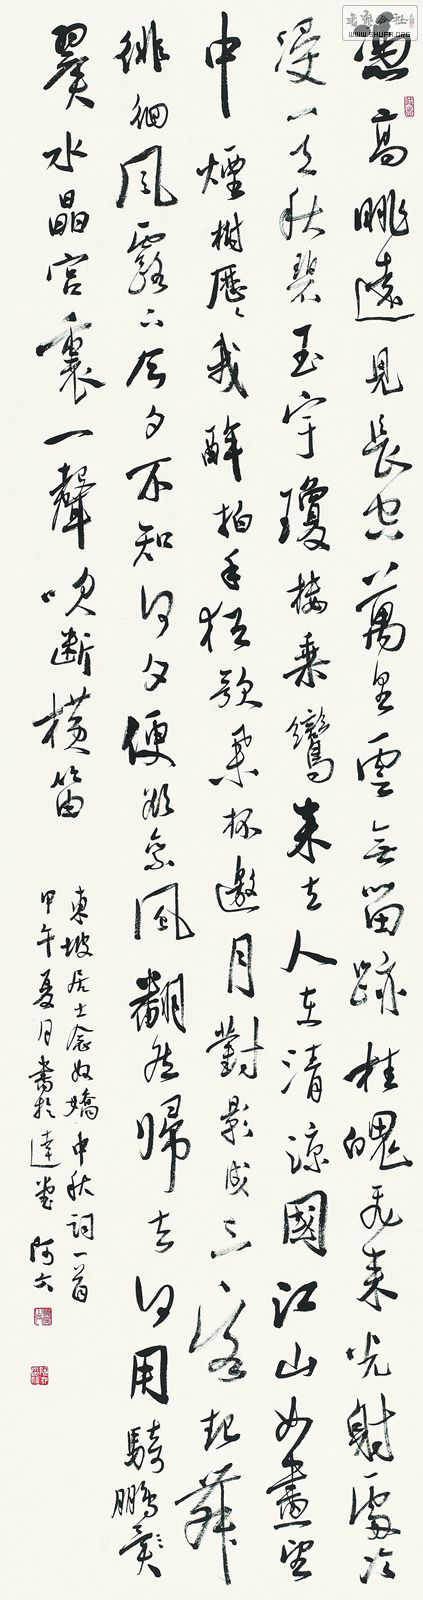 書藝公社
WWW.SHUFA.ORG
憑高眺遠見長空萬里雲無留跡桂魄飛來光射處冷
浸一天秋碧玉宇瓊樓乘鸞來去人在清涼國江山如畫望
中煙樹歷々我醉拍手狂歌舉杯邀月對影成三客起舞
徘徊風露下今夕不知何夕便欲乘風翻然歸去何用騎鵬翼
翼水晶宮裏一聲吹斷橫笛
東坡居士念奴嬌中秋詞一首
甲午夏月書於達堂